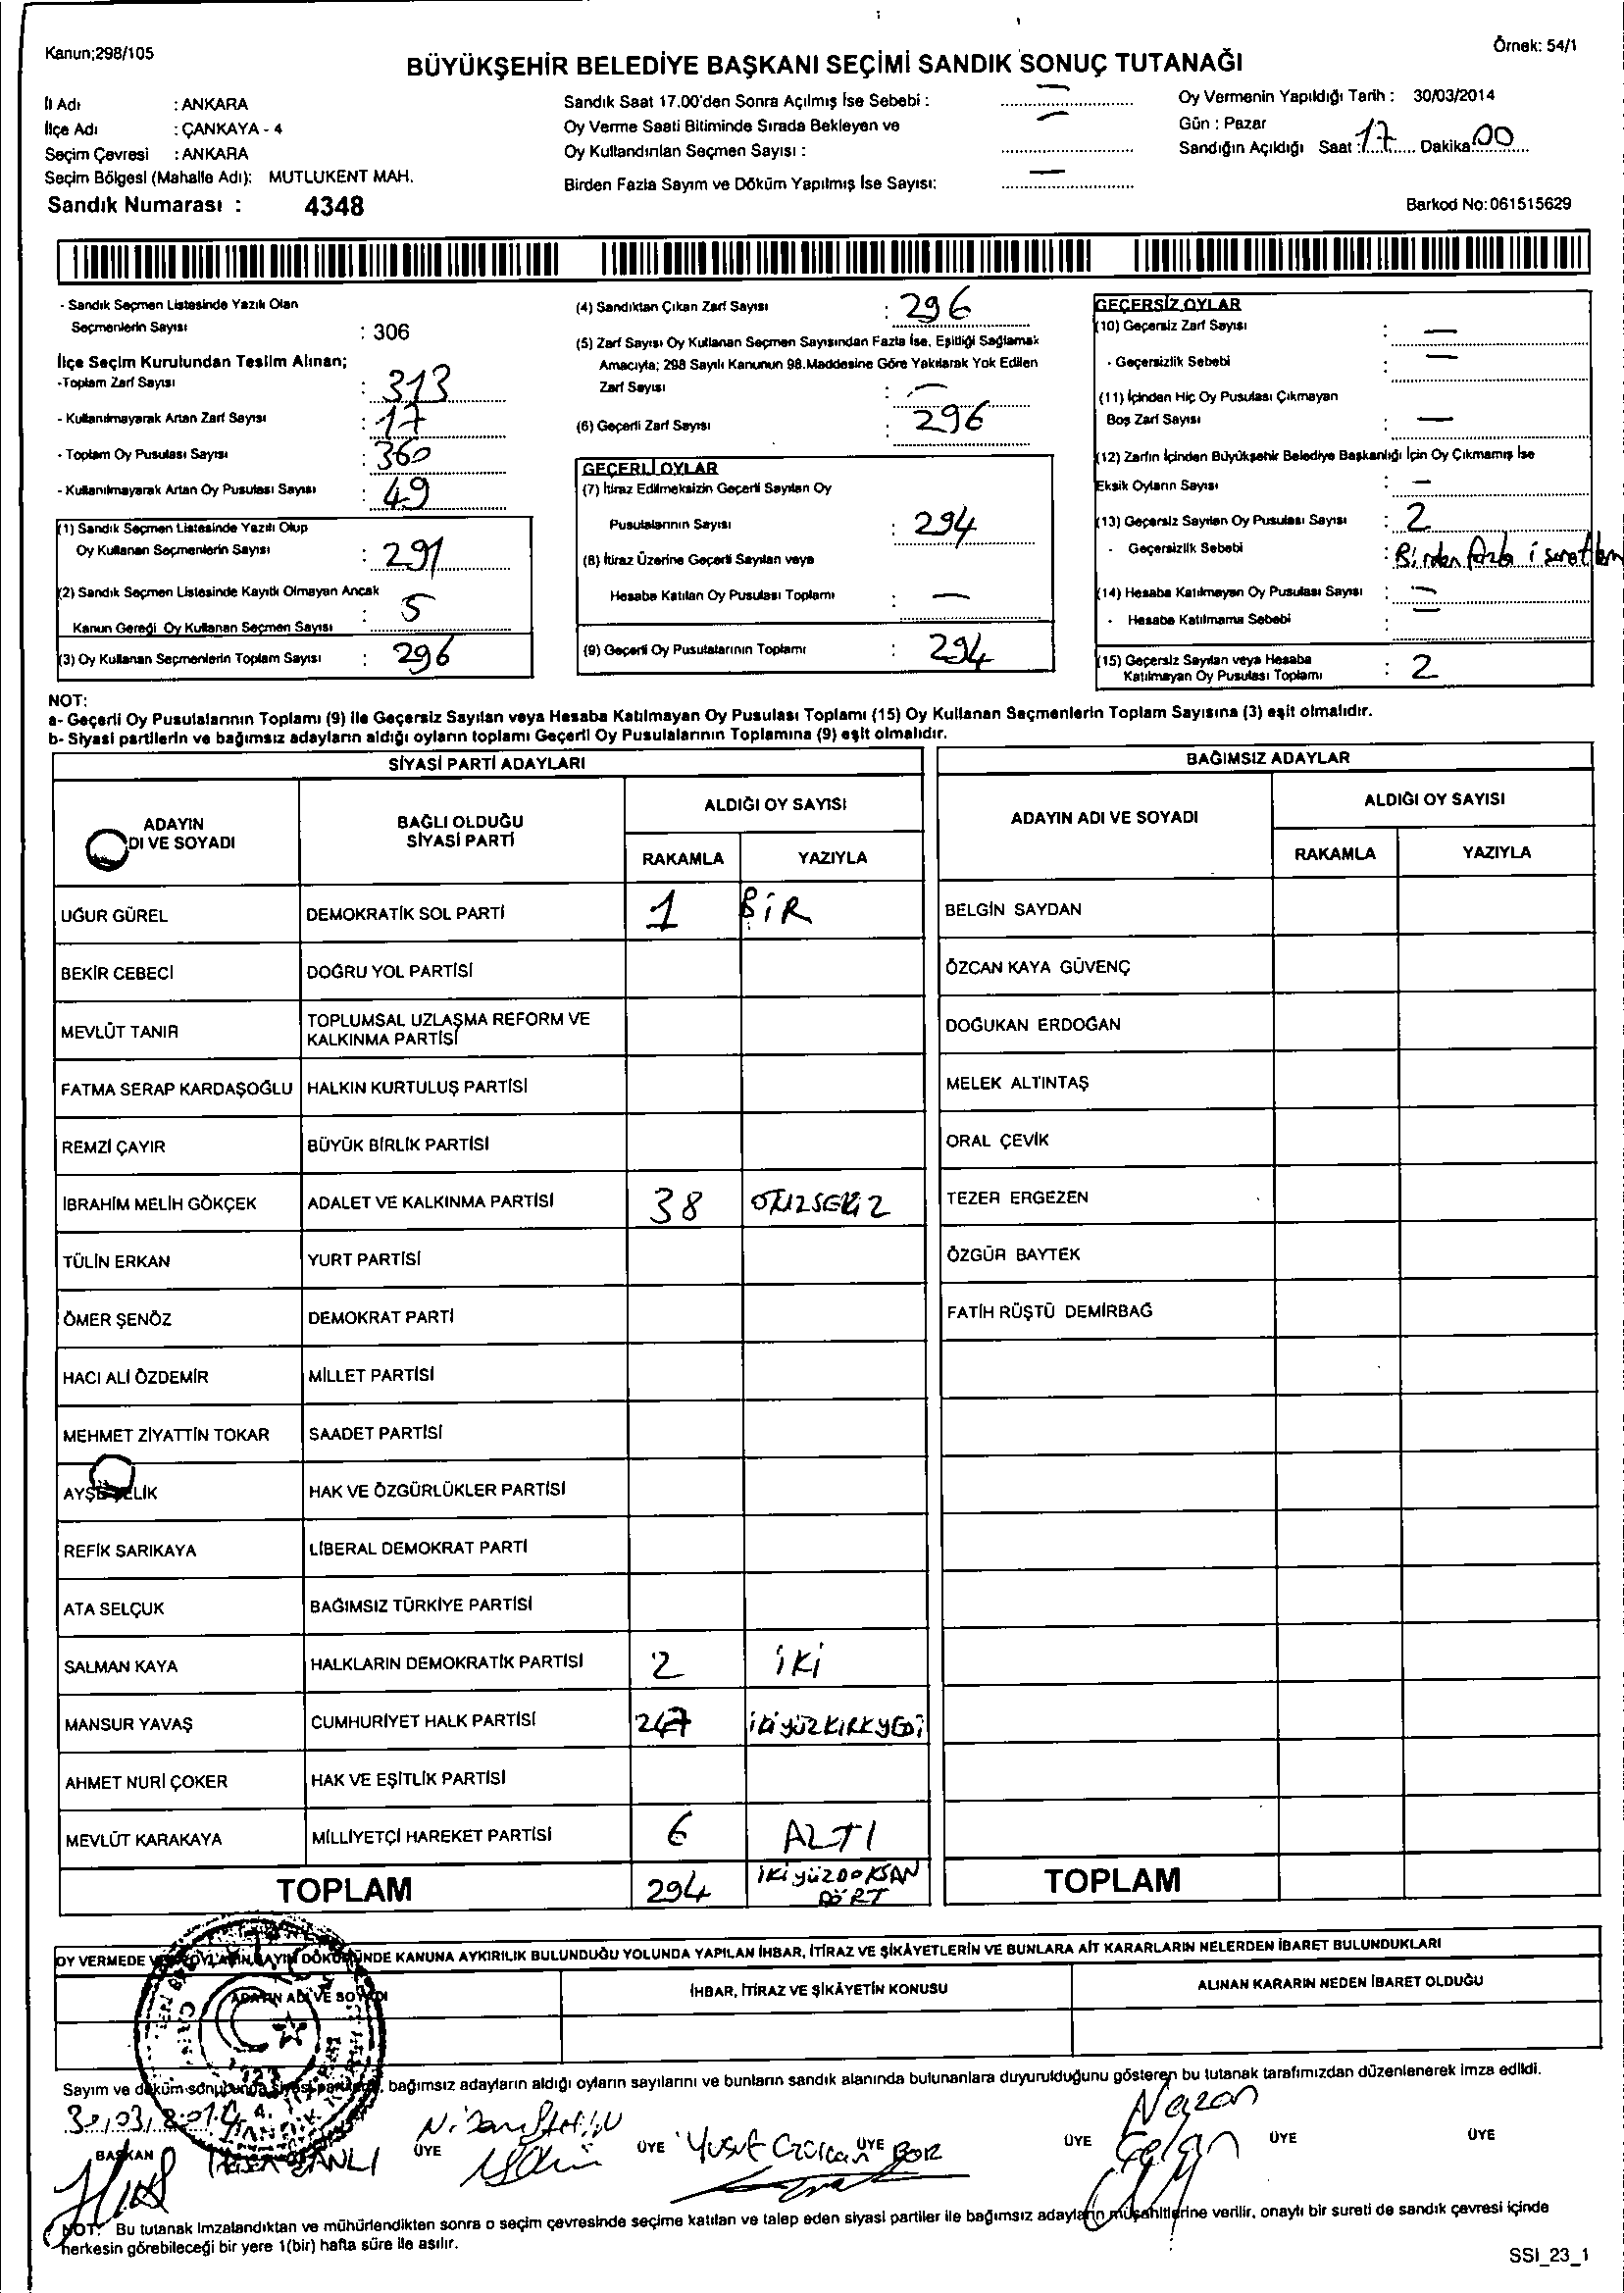 Kanun;298/105
Örnek: 54/1
BÜYÜKŞEHİR BELEDİYE BAŞKANI SEÇİMİ SANDIK SONUÇ TUTANAĞI
İl Adı : ANKARA
İlçe Adı : ÇANKAYA - 4
Seçim Çevresi : ANKARA
Seçim Bölgesi (Mahalle Adı): MUTLUKENT MAH.
Sandık Numarası : 4348
Sandık Saat 17.00'den Sonra Açılmış İse Sebebi : —
Oy Verme Saati Bitiminde Sırada Bekleyen ve —
Oy Kullandırılan Seçmen Sayısı :
Birden Fazla Sayım ve Döküm Yapılmış İse Sayısı: —
Oy Vermenin Yapıldığı Tarih : 30/03/2014
Gün : Pazar
Sandığın Açıldığı Saat : 17 Dakika 00
Barkod No: 061515629
- Sandık Seçmen Listesinde Yazılı Olan
Seçmenlerin Sayısı : 306
İlçe Seçim Kurulundan Teslim Alınan;
-Toplam Zarf Sayısı : 313
- Kullanılmayarak Artan Zarf Sayısı : 17
- Toplam Oy Pusulası Sayısı : 360
- Kullanılmayarak Artan Oy Pusulası Sayısı : 49
(1) Sandık Seçmen Listesinde Yazılı Olup
Oy Kullanan Seçmenlerin Sayısı : 291
(2) Sandık Seçmen Listesinde Kayıtlı Olmayan Ancak
Kanun Gereği Oy Kullanan Seçmen Sayısı : 5
(3) Oy Kullanan Seçmenlerin Toplam Sayısı : 296
(4) Sandıktan Çıkan Zarf Sayısı : 296
(5) Zarf Sayısı Oy Kullanan Seçmen Sayısından Fazla İse, Eşitliği Sağlamak
Amacıyla; 298 Sayılı Kanunun 98.Maddesine Göre Yakılarak Yok Edilen
Zarf Sayısı : —
(6) Geçerli Zarf Sayısı : 296
GEÇERLİ OYLAR
(7) İtiraz Edilmeksizin Geçerli Sayılan Oy
Pusulalarının Sayısı : 294
(8) İtiraz Üzerine Geçerli Sayılan veya
Hesaba Katılan Oy Pusulası Toplamı : —
(9) Geçerli Oy Pusulalarının Toplamı : 294
GEÇERSİZ OYLAR
(10) Geçersiz Zarf Sayısı : —
- Geçersizlik Sebebi : —
(11) İçinden Hiç Oy Pusulası Çıkmayan
Boş Zarf Sayısı : —
(12) Zarfın İçinden Büyükşehir Belediye Başkanlığı İçin Oy Çıkmamış İse
Eksik Oyların Sayısı : —
(13) Geçersiz Sayılan Oy Pusulası Sayısı : 2
- Geçersizlik Sebebi : Birden fazla
(14) Hesaba Katılmayan Oy Pusulası Sayısı : —
- Hesaba Katılmama Sebebi : —
(15) Geçersiz Sayılan veya Hesaba
Katılmayan Oy Pusulası Toplamı : 2
NOT:
a- Geçerli Oy Pusulalarının Toplamı (9) ile Geçersiz Sayılan veya Hesaba Katılmayan Oy Pusulası Toplamı (15) Oy Kullanan Seçmenlerin Toplam Sayısına (3) eşit olmalıdır.
b- Siyasi partilerin ve bağımsız adayların aldığı oyların toplamı Geçerli Oy Pusulalarının Toplamına (9) eşit olmalıdır.
SİYASİ PARTİ ADAYLARI
ADAYIN
DI VE SOYADI
BAĞLI OLDUĞU
SİYASİ PARTİ
ALDIĞI OY SAYISI
RAKAMLA YAZIYLA
UĞUR GÜREL DEMOKRATİK SOL PARTİ 1 BİR
BEKİR CEBECİ DOĞRU YOL PARTİSİ
MEVLÜT TANIR TOPLUMSAL UZLAŞMA REFORM VE
KALKINMA PARTİSİ
FATMA SERAP KARDAŞOĞLU HALKIN KURTULUŞ PARTİSİ
REMZİ ÇAYIR BÜYÜK BİRLİK PARTİSİ
İBRAHİM MELİH GÖKÇEK ADALET VE KALKINMA PARTİSİ 38 OTUZSEKİZ
TÜLİN ERKAN YURT PARTİSİ
ÖMER ŞENÖZ DEMOKRAT PARTİ
HACI ALİ ÖZDEMİR MİLLET PARTİSİ
MEHMET ZİYATTİN TOKAR SAADET PARTİSİ
HAK VE ÖZGÜRLÜKLER PARTİSİ
REFİK SARIKAYA LİBERAL DEMOKRAT PARTİ
ATA SELÇUK BAĞIMSIZ TÜRKİYE PARTİSİ
SALMAN KAYA HALKLARIN DEMOKRATİK PARTİSİ 2 İKİ
MANSUR YAVAŞ CUMHURİYET HALK PARTİSİ 247 İKİYÜZKIRKYEDİ
AHMET NURİ ÇOKER HAK VE EŞİTLİK PARTİSİ
MEVLÜT KARAKAYA MİLLİYETÇİ HAREKET PARTİSİ 6 ALTI
TOPLAM 294 İKİYÜZDOKSAN
DÖRT
BAĞIMSIZ ADAYLAR
ADAYIN ADI VE SOYADI
ALDIĞI OY SAYISI
RAKAMLA YAZIYLA
BELGİN SAYDAN
ÖZCAN KAYA GÜVENÇ
DOĞUKAN ERDOĞAN
MELEK ALTINTAŞ
ORAL ÇEVİK
TEZER ERGEZEN
ÖZGÜR BAYTEK
FATİH RÜŞTÜ DEMİRBAĞ
TOPLAM
OY VERMEDE KANUNA AYKIRILIK BULUNDUĞU YOLUNDA YAPILAN İHBAR, İTİRAZ VE ŞİKÂYETLERİN VE BUNLARA AİT KARARLARIN NELERDEN İBARET BULUNDUKLARI
ADI VE SOYADI
İHBAR, İTİRAZ VE ŞİKÂYETİN KONUSU
ALINAN KARARIN NEDEN İBARET OLDUĞU
Sayım ve döküm sonucunda siyasi bağımsız adayların aldığı oyların sayılarını ve bunların sandık alanında bulunanlara duyurulduğunu gösteren bu tutanak tarafımızdan düzenlenerek imza edildi.
30/03/2014
BAŞKAN ÜYE ÜYE ÜYE ÜYE ÜYE ÜYE
Yusuf
NOT: Bu tutanak imzalandıktan ve mühürlendikten sonra o seçim çevresinde seçime katılan ve talep eden siyasi partiler ile bağımsız adayların müşahitlerine verilir, onaylı bir sureti de sandık çevresi içinde
herkesin görebileceği bir yere 1(bir) hafta süre ile asılır.
SSI_23_1